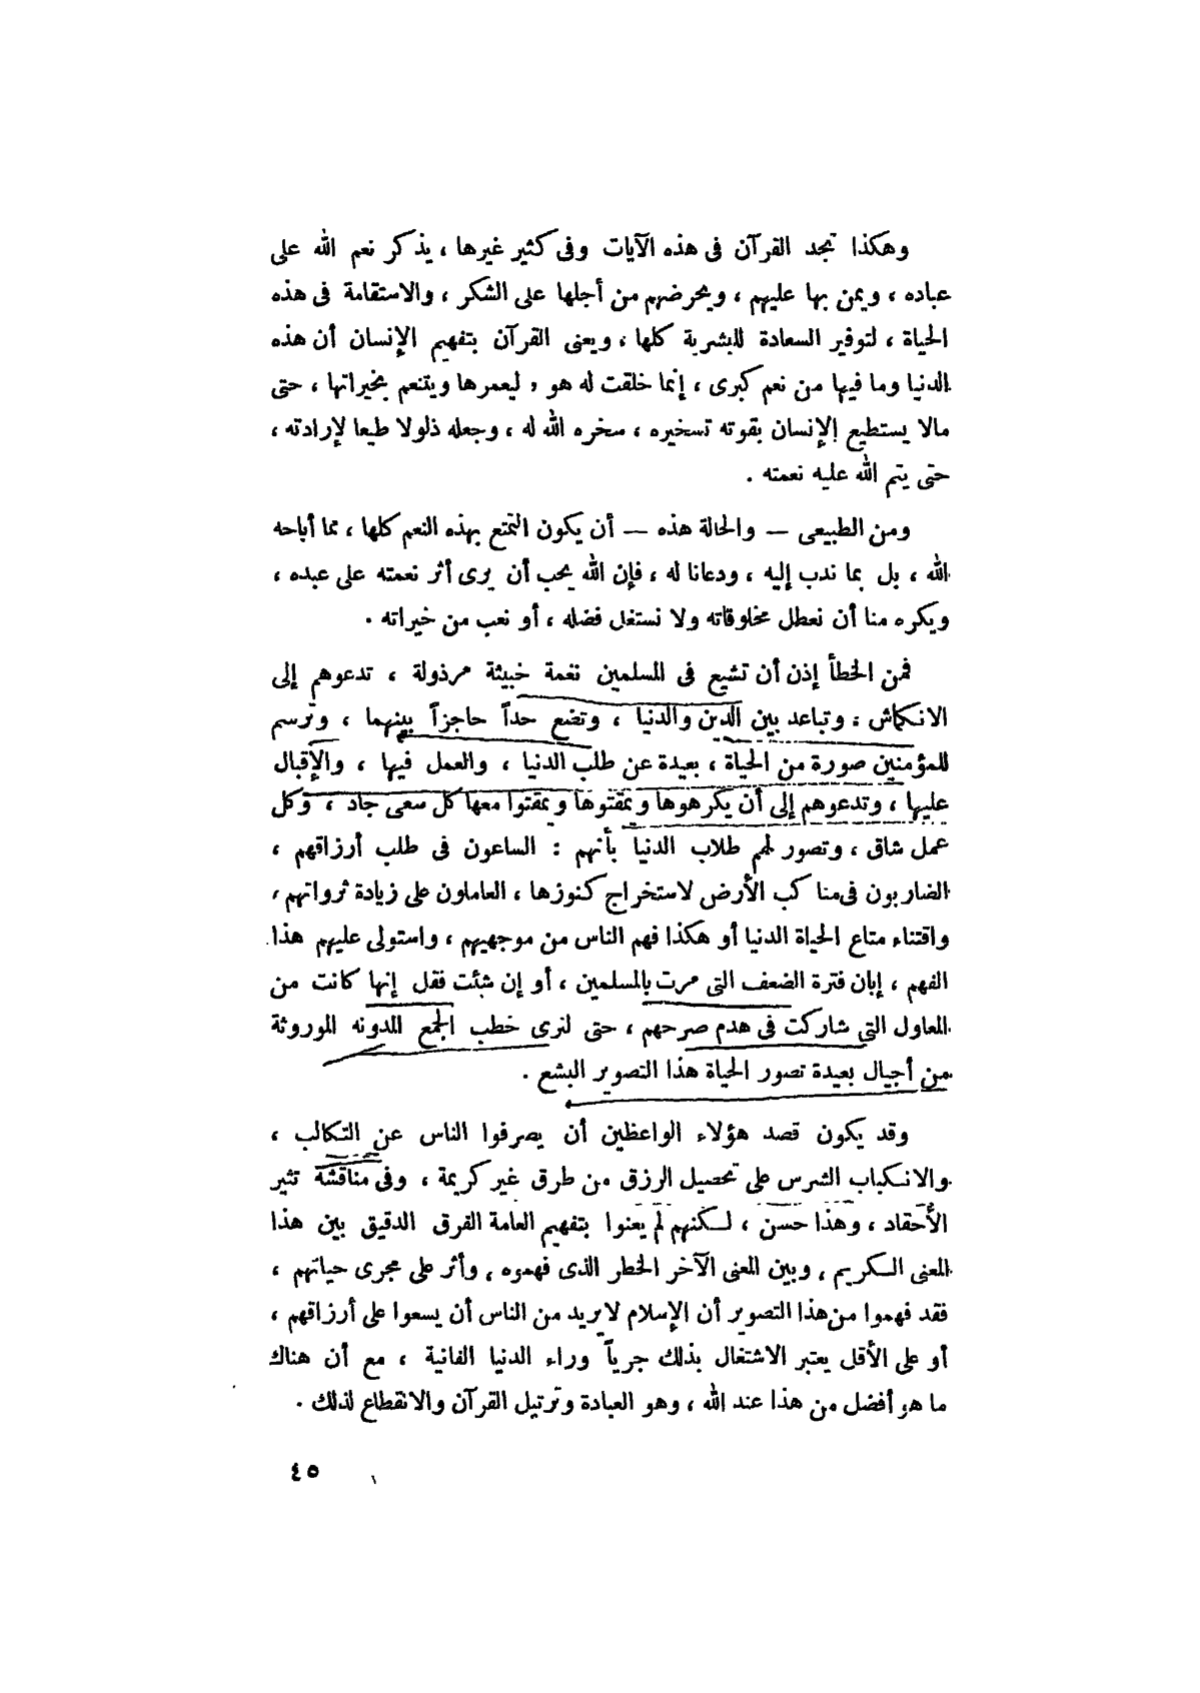 وهكذا تجد القرآن فى هذه الآيات وفى كثير غيرها ، يذكر نعم الله على
عباده ، ويمن بها عليهم ، ويحرضهم من أجلها على الشكر ، والاستقامة فى هذه
الحياة ، لتوفير السعادة للبشرية كلها ، ويعنى القرآن بتفهيم الإنسان أن هذه
الدنيا وما فيها من نعم كبرى ، إنما خلقت له هو ، ليعمرها ويتنعم بخيراتها ، حتى
مالا يستطيع الإنسان بقوته تسخيره ، سخره الله له ، وجعله ذلولا طيعا لإرادته ،
حتى يتم الله عليه نعمته .
ومن الطبيعى – والحالة هذه – أن يكون التمتع بهذه النعم كلها ، مما أباحه
الله ، بل بما ندب إليه ، ودعانا له ، فإن الله يحب أن يرى أثر نعمته على عبده ،
ويكره منا أن نعطل مخلوقاته ولا نستغل فضله ، أو نعب من خيراته .
فمن الخطأ إذن أن تشيع فى المسلمين نغمة خبيثة مرذولة ، تدعوهم إلى
الانكماش ، وتباعد بين الدين والدنيا ، وتضع حداً حاجزاً بينهما ، وترسم
للمؤمنين صورة من الحياة ، بعيدة عن طلب الدنيا ، والعمل فيها ، والإقبال
عليها ، وتدعوهم إلى أن يكرهوها ويمقتوها ويمقتوا معها كل سعى جاد ، وكل
عمل شاق ، وتصور لهم طلاب الدنيا بأنهم : الساعون فى طلب أرزاقهم ،
الضاربون فى مناكب الأرض لاستخراج كنوزها ، العاملون على زيادة ثرواتهم ،
واقتناء متاع الحياة الدنيا أو هكذا فهم الناس من موجهيهم ، واستولى عليهم هذا
الفهم ، إبان فترة الضعف التى مرت بالمسلمين ، أو إن شئت فقل إنها كانت من
المعاول التي شاركت فى هدم صرحهم ، حتى لنرى خطب الجمع المدونه الموروثة
من أجيال بعيدة تصور الحياة هذا التصوير البشع .
وقد يكون قصد هؤلاء الواعظين أن يصرفوا الناس عن التكالب ،
والانكباب الشرس على تحصيل الرزق من طرق غير كريمة ، وفى مناقشة تثير
الأحقاد ، وهذا حسن ، لكنهم لم يعنوا بتفهيم العامة الفرق الدقيق بين هذا
المعنى الكريم ، وبين المعنى الآخر الخطر الذى فهموه ، وأثر على مجرى حياتهم ،
فقد فهموا من هذا التصوير أن الإسلام لا يريد من الناس أن يسعوا على أرزاقهم ،
أو على الأقل يعتبر الاشتغال بذلك جرياً وراء الدنيا الفانية ، مع أن هناك
ما هو أفضل من هذا عند الله ، وهو العبادة وترتيل القرآن والانقطاع لذلك .
٤٥